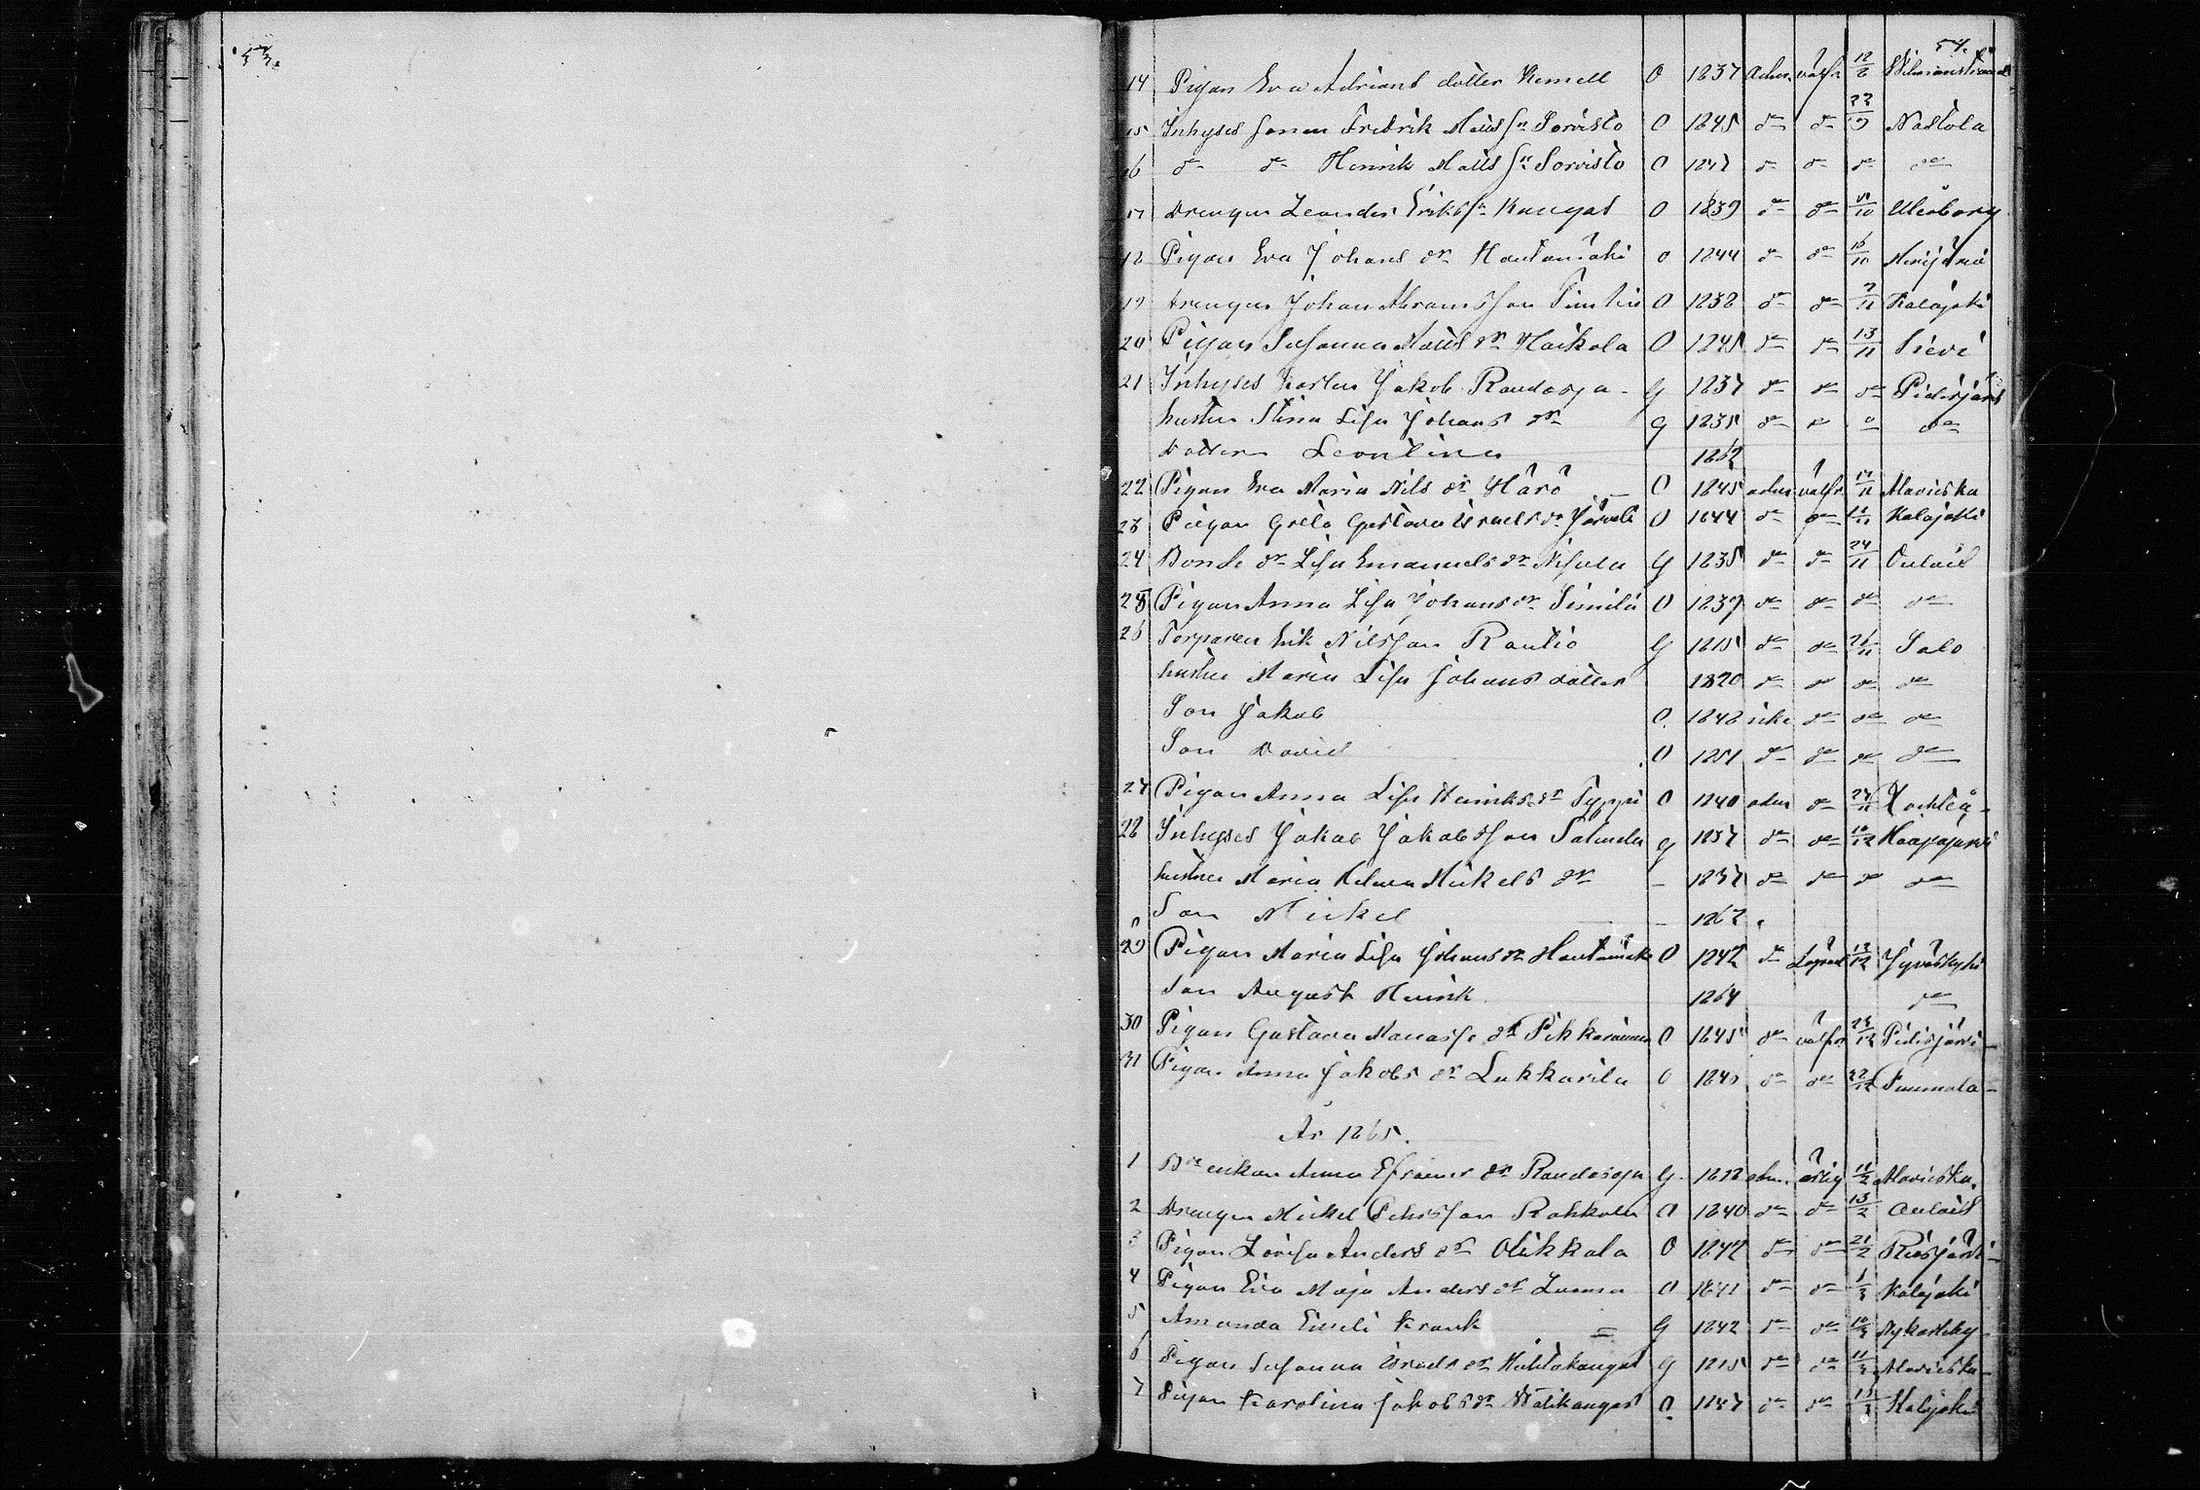 53.
54.
14 Pigan Eva Adrians dotter Kemell O 1837 adm. välfr. 12/8 Wilmanstrand
15 Inhyses sonen Fredrik Matts sn Sorvisto O 1845 dn dn 22/9 Nastola
16 dn dn Henrik Matts sn Sorvisto O 1847 dn dn dn dn
17 Drengen Leander Eriks sn Kangas O 1839 dn dn /10 Uleåborg
18 Pigan Eva Johans dr Hautamäki O 1844 dn dn 16/10
19 Drengen Johan Abramsson O 1838 dn dn 7/11 Kalajoki
20 Pigan Susanna Matts dr Maikola O 1845 dn dn 13/11 Sievi
21 Inhyses karlen Jakob Raudasoja G 1837 dn dn dn Pidisjärvi
hustru Stina Lisa Johans dr G 1835 dn dn dn dn
Dotter Leontina 1862
22 Pigan Eva Maria Nils dr Härö O 1845 adm välfr. 17/11 Alavieska
23 Piegan Greta Gustava Israels dr Järvelä O 1844 dn dn /11 Kalajoki
24 Bonde dr Lisa Emanuels dr Nisula G 1835 dn dn 24/11 Oulais
25 Pigan Anna Lisa Johans dr Similä O 1837 dn dn dn dn
26 Torparen Erik Nilsson Rautio G 1815 dn dn 26/11 Salo
hustru Maria Lisa Johans dotter 1820 dn dn dn dn
Son Jakob O 1848 icke dn dn dn
Son David O 1851 dn dn dn dn
27 Pigan Anna Lisa Henriks dr Typpö O 1840 adm dn 27/11 Lochteå
28 Inhyses Jakob Jakobsson Salmela G 1837 dn dn 10/12 Haapajärvi
hustru Maria Helena Mickels dr - 1837 dn dn dn dn
Son Mickel - 1862
29 Pigan Maria Lisa Johans dr Hautamäki O 1842 dn 13/12 Jyväskylä
Son August Henrik 1864 dn
30 Pigan Gustava Manasse dr Pikkarainen O 1845 dn välfr 23/12 Pidisjärvi
31 Pigan Anna Jakobs dr Lukkarila O 1840 dn dn 22/12 Puumala
År 1865.
1 enkan Anna Efraims dr Raudasoja G. 1818 adm. ärlig 11/2 Alavieska.
2 Drengen Mickel Pehrsson Rahkola O 1840 dn dn 13/2 Oulais
3 Pigan Lovisa Anders dr Olikkala O 1842 dn dn 21/2 Reisjärvi
4 Pigan Eva Maja Anders dr O 1841 dn dn 1/3 Kalajoki
5 Amanda Emeli Krank = G 1842 dn dn 10/3 Nykarleby
6 Pigan Susanna Israels dr Hihtakangas G 1815 dn dn 11/3 Alavieska
7 Pigan Karolina Jakobs dr Watikangas O 1847 dn dn 13/3 Kalajoki